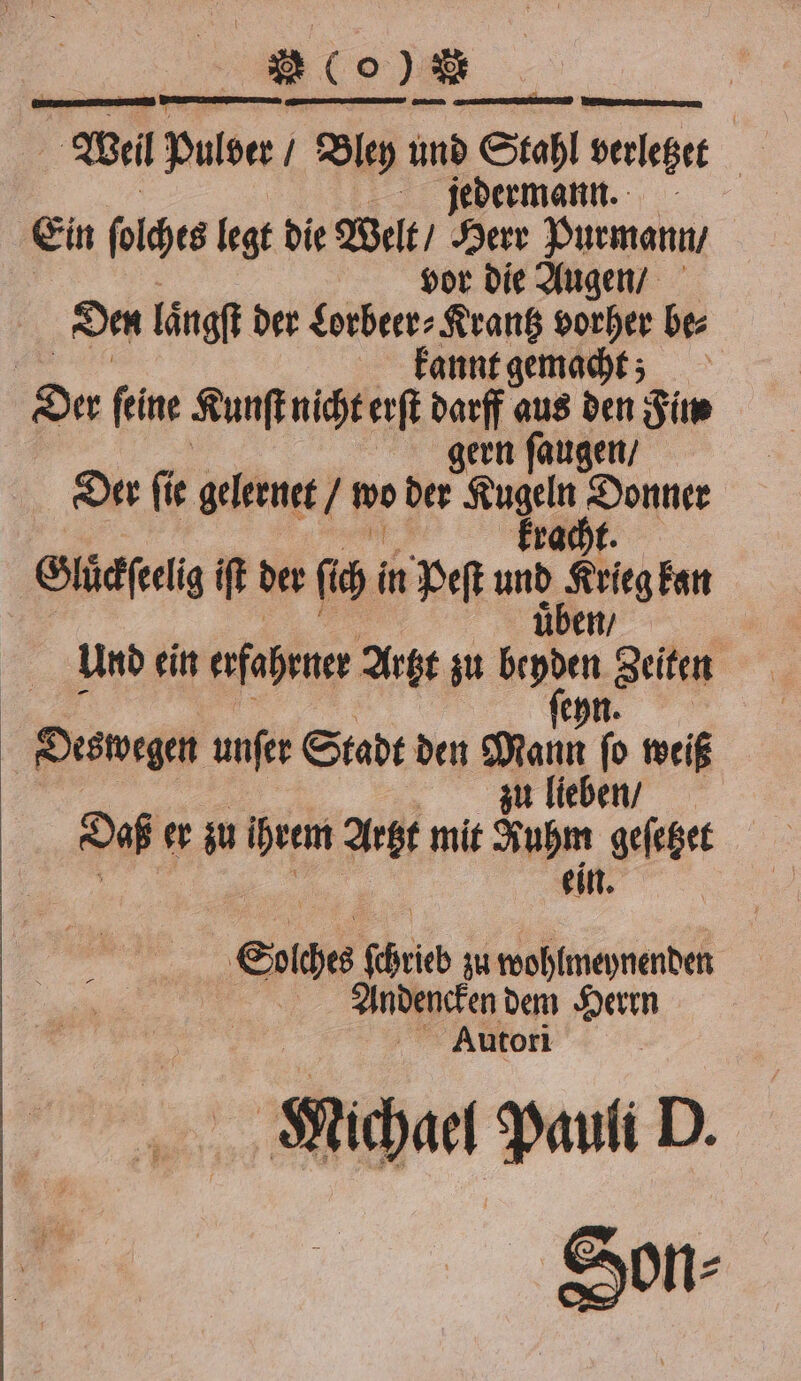 ❁ ( o ) ❁
Weil Pulver / Bley und Stahl verletzet
jedermann.
Ein ſolches legt die Welt / Herr Purmann /
vor die Augen /
Den laͤngſt der Lorbeer-Krantz vorher be-
kannt gemacht ;
Der ſeine Kunſt nicht erſt darff aus den Fin-
gern ſaugen /
Der ſie gelernet / wo der Kugeln Donner
kracht.
Gluͤckſeelig iſt der ſich in Peſt und Krieg kan
uͤben /
Und ein erfahrner Artzt zu beyden Zeiten
ſeyn.
Deswegen unſer Stadt den Mann ſo weiß
zu lieben /
Daß er zu ihrem Artzt mit Ruhm geſetzet
ein.
Solches ſchrieb zu wohlmeynenden
Andencken dem Herrn
Autori
Michael Pauli D.
Son-